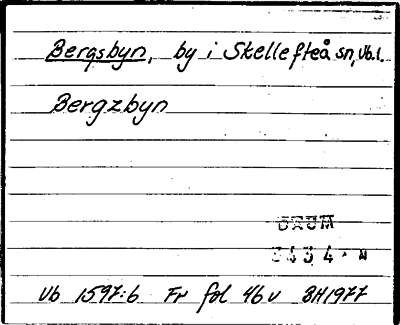 Bergsbyn, by i Skellefteå sn, Vb.l.
Bergzbyn
DAUM
3434
Vb 1597:6 Fr fol 46v BH1977